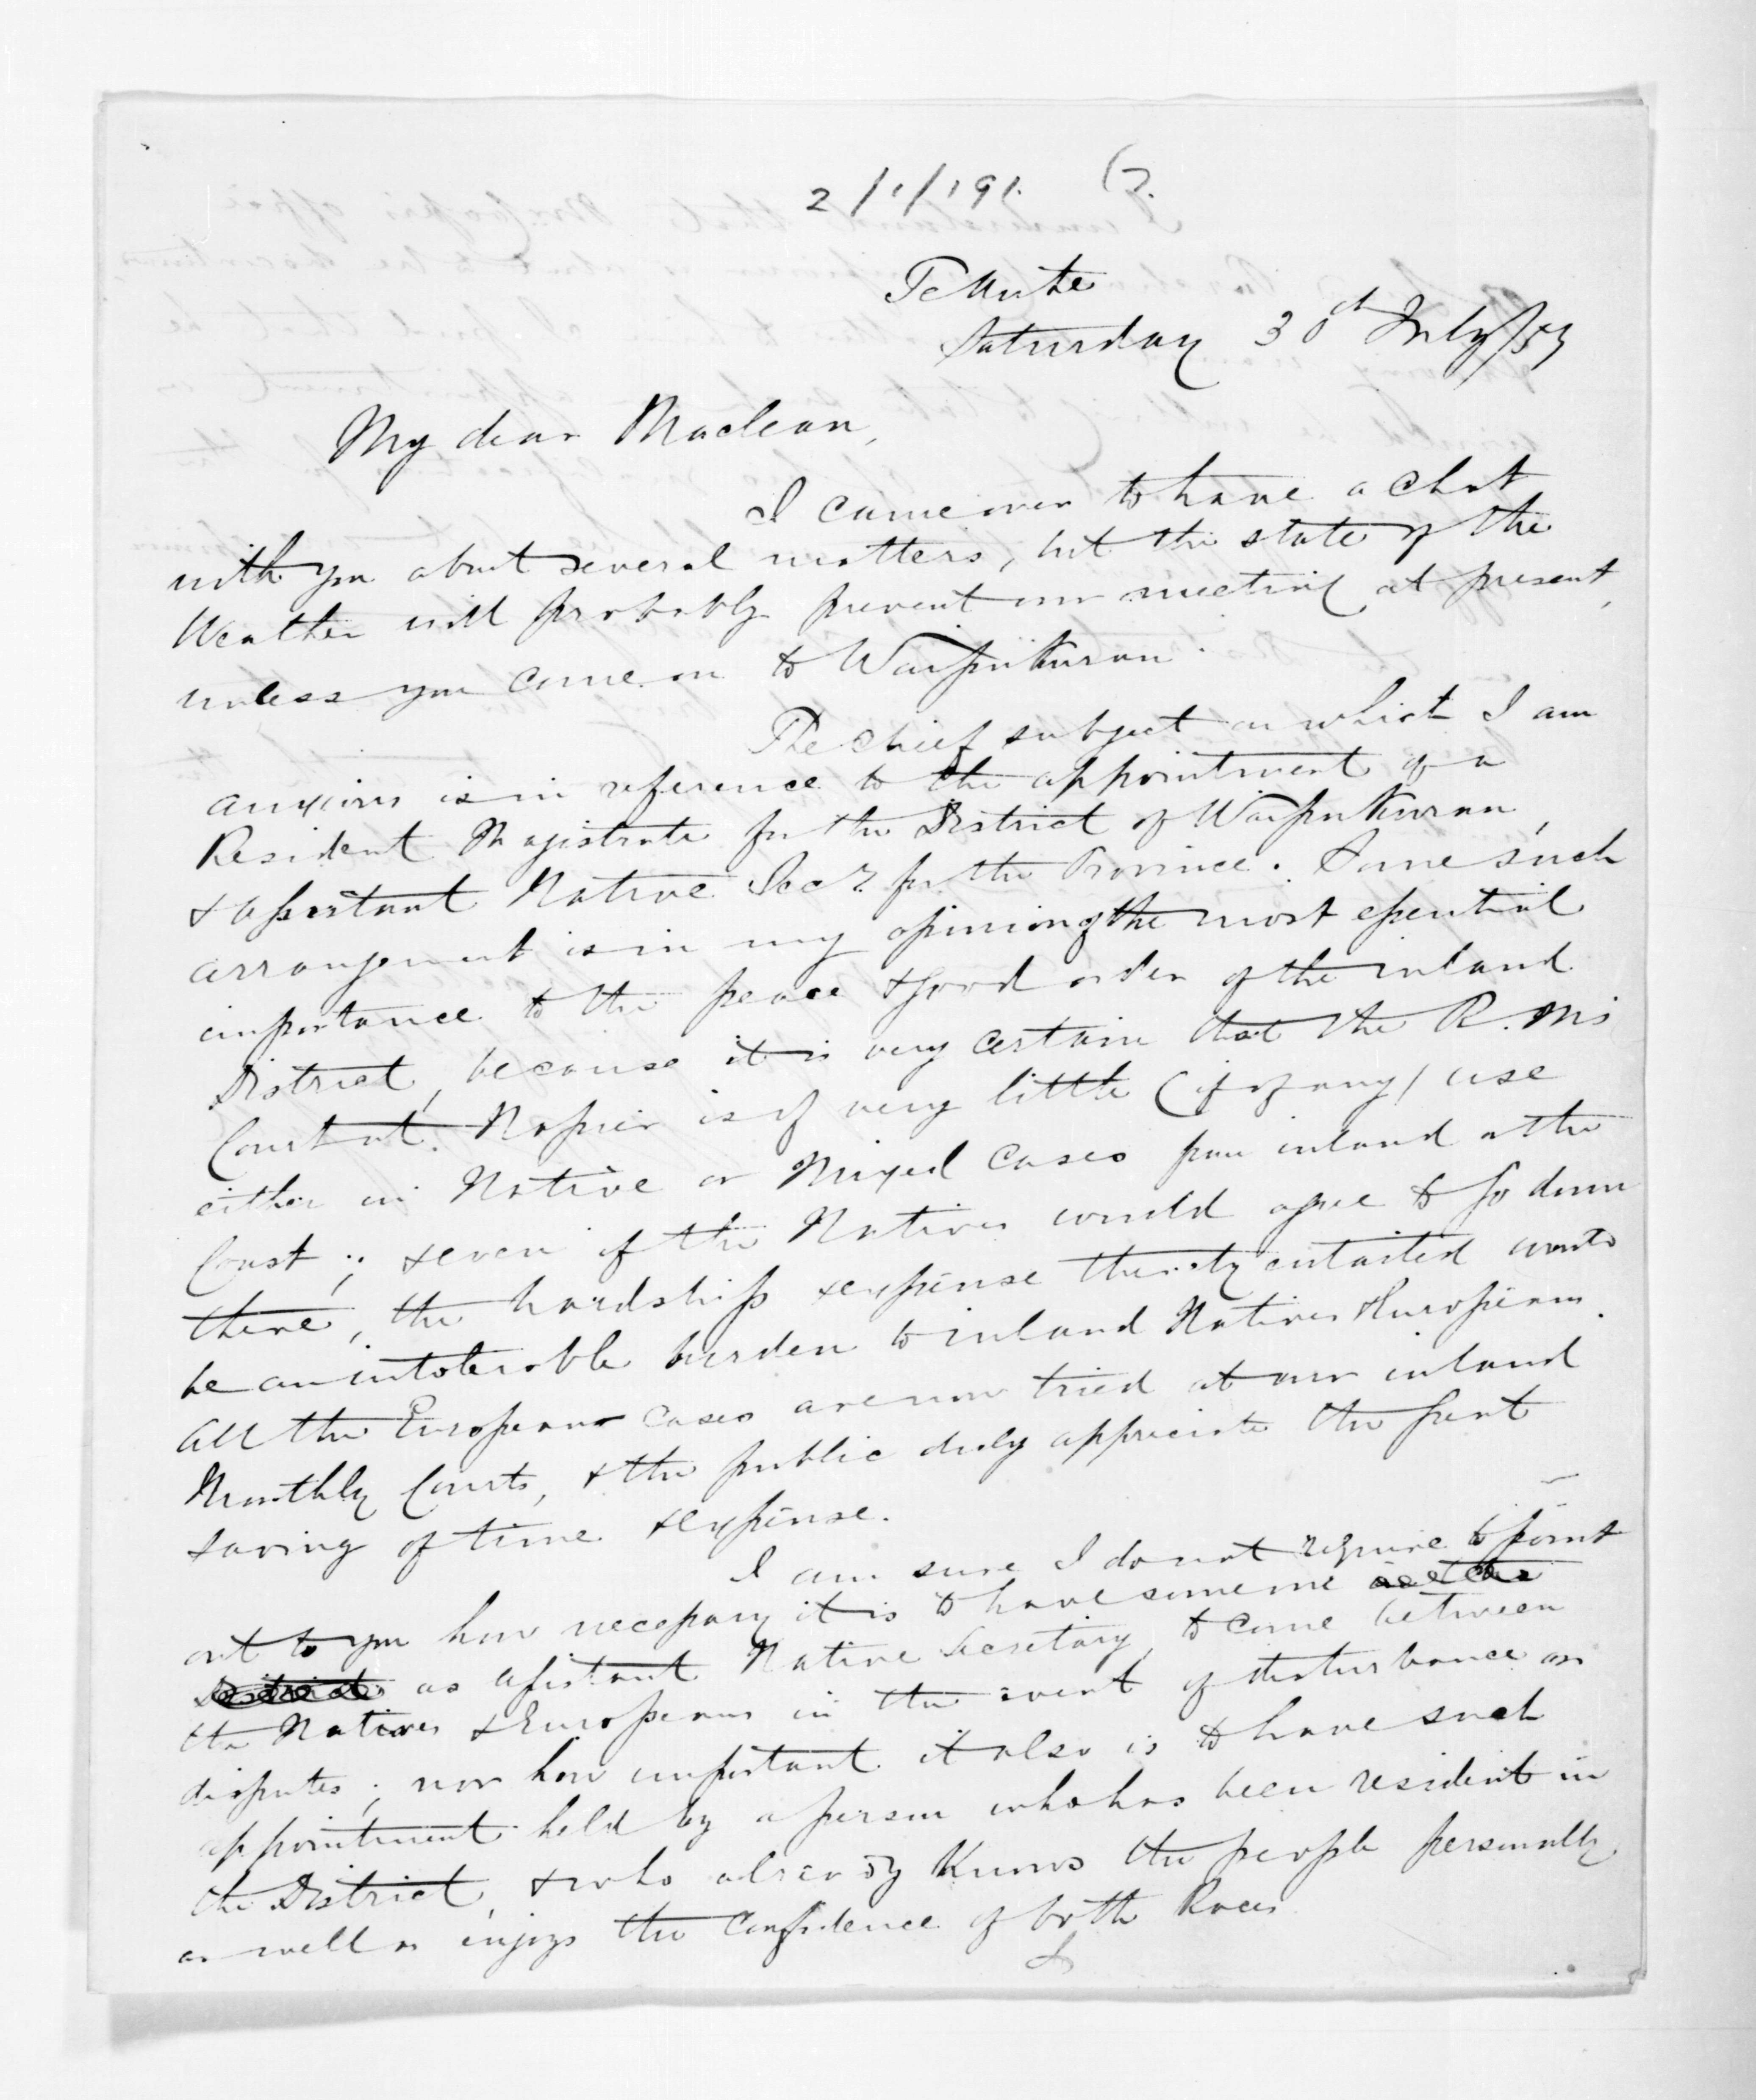 2/1/191.
Te Aute
Saturday 30th July/59
My dear Maclean,
I came over to have a chat
with you about several matters, but the state of the
Weather will probably prevent our meeting at present,
unless you come on to Waipukurau.
The chief subject on which I am
anxious is in reference to the appointment of a
Resident Magistrate for the District of Waipukurau,
& assistant Native Secy. for the Province. Some such
arrangement is in my opinion of the most essential
importance to the peace & good order of the inland
District, because it is very certain that the R. Ms
Court at Napier is of very little (if of any) use
either in Native or Mixed Cases from inland or the
Coast; & even if the Natives would agree to go down
there, the hardship & expense thereby entailed would
be an intolerable burden to inland Natives & Europeans.
All the European cases are now tried at our inland
Monthly Courts, & the public duly appreciate the great
saving of time & expense.
I am sure I do not require to point
out to you how necessary it is to have some one
as assistant Native Secretary, to come between
the Natives & Europeans in the event of disturbance or
disputes; nor how important it also is to have such
appointment held by a person who has been resident in
the District, & who already knows the people personally
as well as enjoys the Confidence of both Races